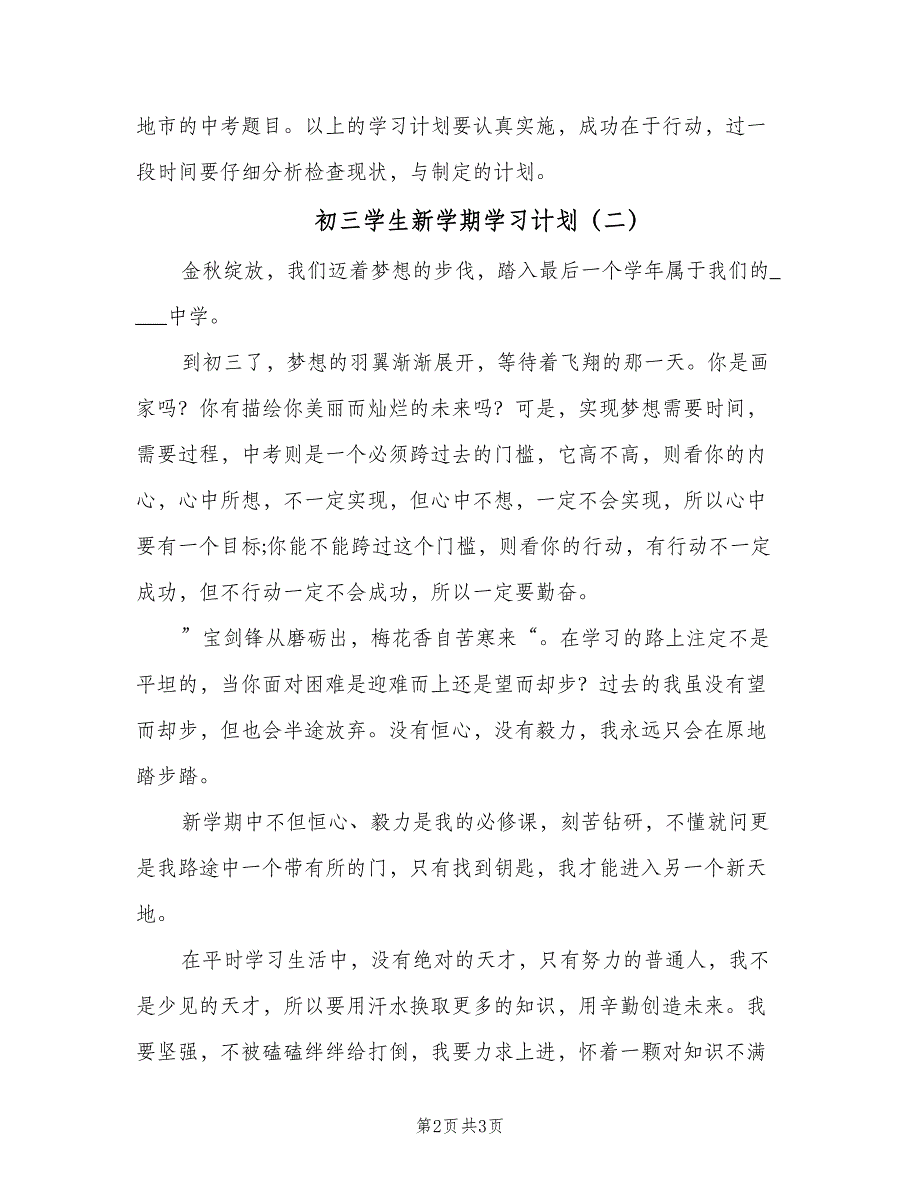 地市的中考题目。以上的学习计划要认真实施，成功在于行动，过一
段时间要仔细分析检查现状，与制定的计划。
初三学生新学期学习计划（二）
金秋绽放，我们迈着梦想的步伐，踏入最后一个学年属于我们的_
___中学。
到初三了，梦想的羽翼渐渐展开，等待着飞翔的那一天。你是画
家吗？你有描绘你美丽而灿烂的未来吗？可是，实现梦想需要时间，
需要过程，中考则是一个必须跨过去的门槛，它高不高，则看你的内
心，心中所想，不一定实现，但心中不想，一定不会实现，所以心中
要有一个目标;你能不能跨过这个门槛，则看你的行动，有行动不一定
成功，但不行动一定不会成功，所以一定要勤奋。
”宝剑锋从磨砺出，梅花香自苦寒来“。在学习的路上注定不是
平坦的，当你面对困难是迎难而上还是望而却步？过去的我虽没有望
而却步，但也会半途放弃。没有恒心，没有毅力，我永远只会在原地
踏步踏。
新学期中不但恒心、毅力是我的必修课，刻苦钻研，不懂就问更
是我路途中一个带有所的门，只有找到钥匙，我才能进入另一个新天
地。
在平时学习生活中，没有绝对的天才，只有努力的普通人，我不
是少见的天才，所以要用汗水换取更多的知识，用辛勤创造未来。我
要坚强，不被磕磕绊绊给打倒，我要力求上进，怀着一颗对知识不满
第2页共3页